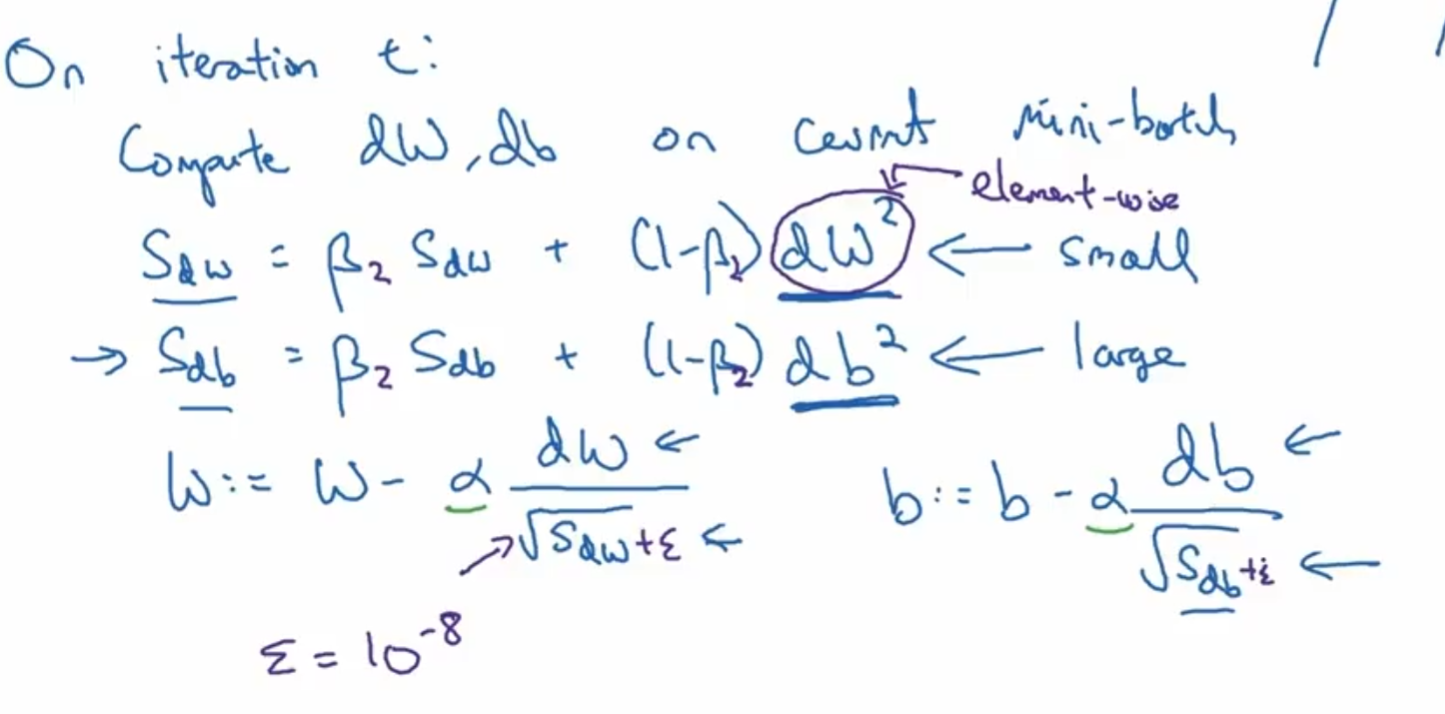 On iteration t:
Compute dW, db on current mini-batch
element-wise
S_dw = β₂ S_dw + (1-β₂) dW² ← small
→ S_db = β₂ S_db + (1-β₂) db² ← large
W := W - α dW / (√S_dw + ε) ← b := b - α db / (√S_db + ε) ←
ε = 10⁻⁸